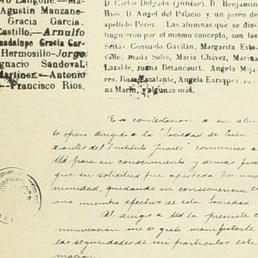 Agustin Manzane-
Gracia Garcia.
Castillo, Arnulfo
Guadalupe Gracia Gar-
Hermosillo-Jorge
Ignacio Sandoval.
Martinez.- Antonio
Francisco Rios.
D. Carlos Delgado, (junior), D. Benjamin
Rios, D Angel del Palacio y un joven de
apellido Pérez. Las alumnas que se dis-
tinguieron por el mismo concepto, son las
Sritas. Consuelo Gavilán, Margarita Esto-
María Solis, María Chavez, Marina
Lazalde, Juana Betancourt, Angela Mija
res, Rosa Escalante, Angela Enriquez,
na Marin, y algunas más.
En contestacion a su
oficio dirigido a la "Sociedad de
diantes del Instituto Juarez" comunico a
Ud para su conocimiento y demas fines
que su solicitud fue aprobada por
nimidad, quedando en consecuencia
miembro efectivo de esta Sociedad.
Al dirigir a Ud la presente
municacion me es grato manifestarle
las seguridades de mi particular
macion